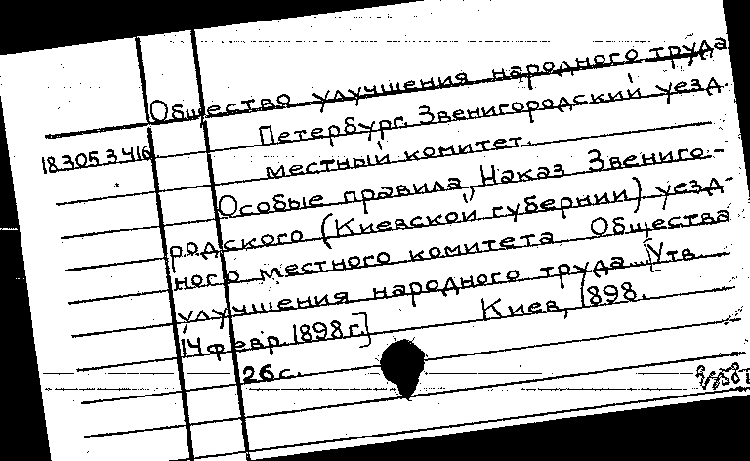 Общество улучшения народного труда
Петербург. Звенигородский уезд.
18.305.3.416
местный комитет.
Особые правила, Наказ Звениго-
родского (Киевской губернии) уезд-
ного местного комитета Общества
улучшения народного труда. [Утв.
14 февр. 1898 г.] Киев, 1898.
26 с.